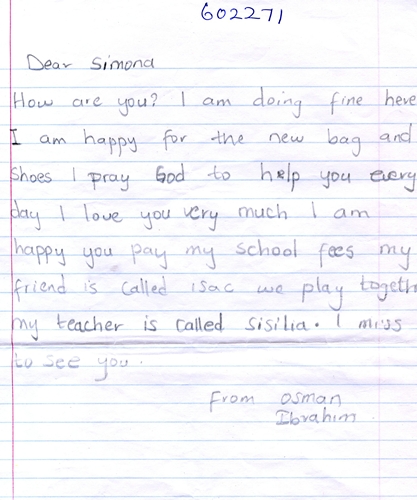 602271
Dear Simona
How are you? I am doing fine here
I am happy for the new bag and
Shoes I pray God to help you every
day I love you very much I am
happy you pay my school fees my
friend is called isac we play togeth
my teacher is called sisilia. I miss
to see you.
From Osman
Ibrahim